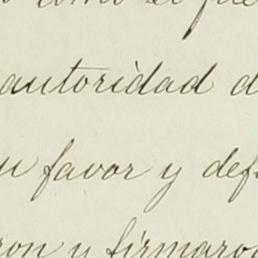 como el
autoridad d
u favor y def
ron y firmaro